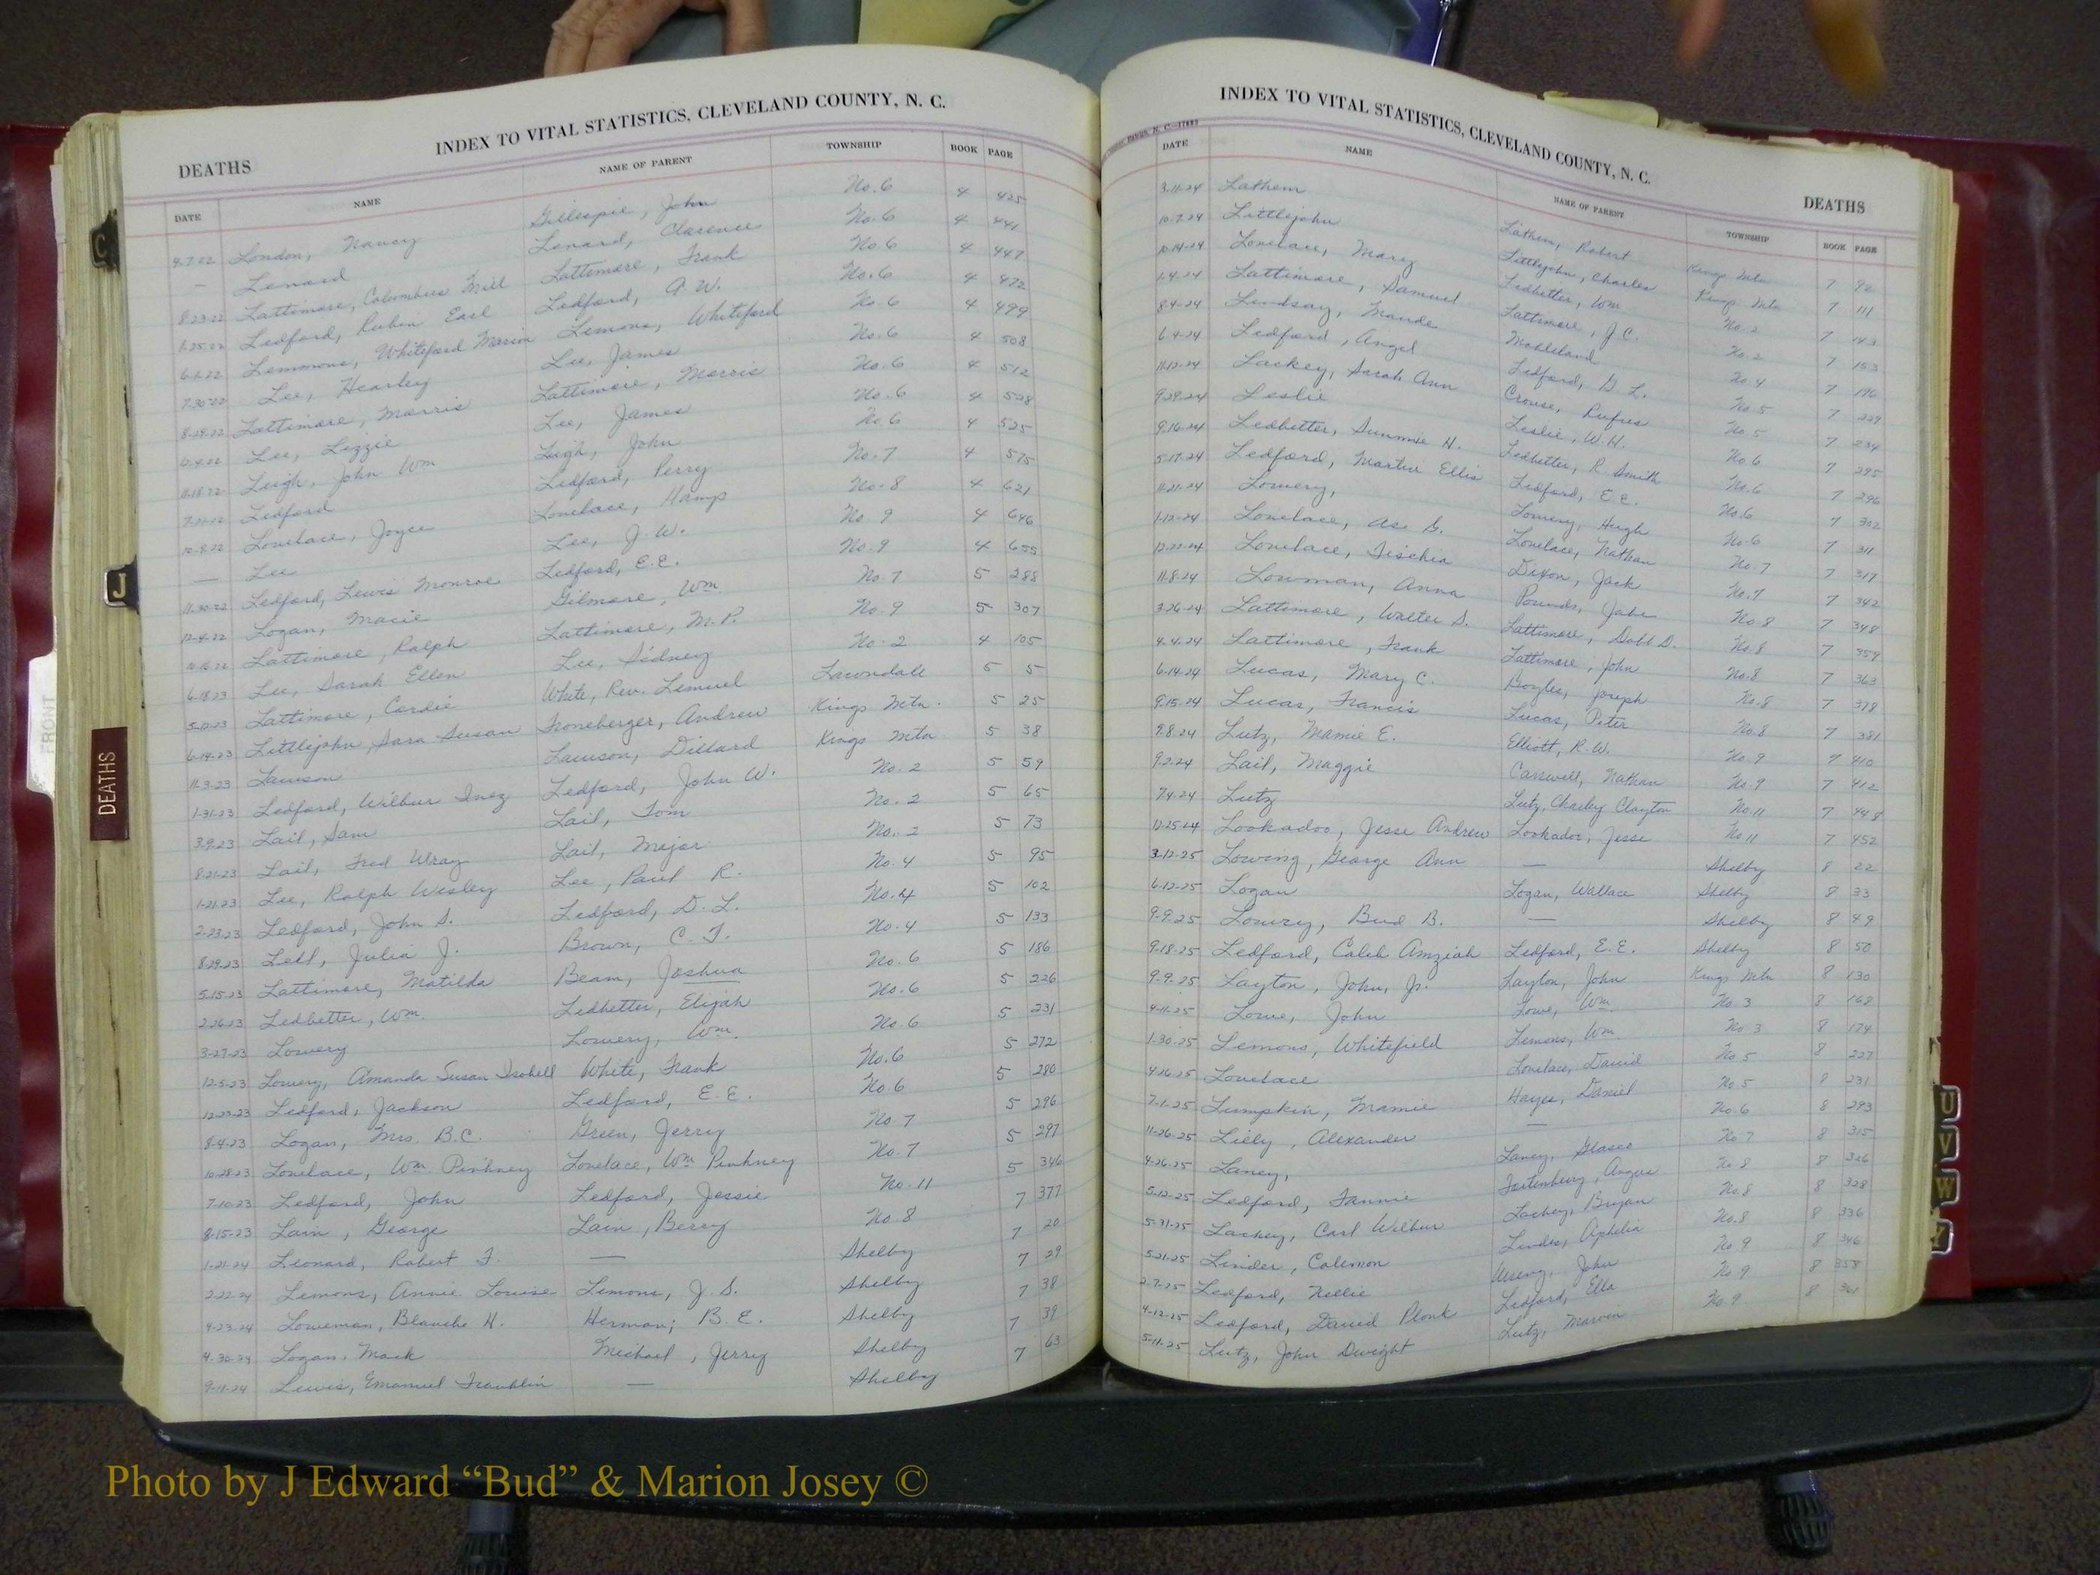 INDEX TO VITAL STATISTICS, CLEVELAND COUNTY, N. C.
DEATHS
DATE NAME NAME OF PARENT TOWNSHIP BOOK PAGE
9-7-22 London, Nancy Gillespie, John No. 6 4 425
— Lenard Lenard, Clarence No. 6 4 441
8-23-22 Lattimore, Columbus Mill Lattimore, Frank No 6 4 447
1-25-22 Ledford, Rubin Earl Ledford, A. W. No. 6 4 472
6-2-22 Lemmons, Whiteford Marion Lemons, Whiteford No. 6 4 499
7-30-22 Lee, Hearley Lee, James No. 6 4 508
8-29-22 Lattimore, Morris Lattimore, Morris No. 6 4 512
12-4-22 Lee, Lizzie Lee, James No. 6 4 528
11-18-22 Leigh, John Wm Leigh, John No 6 4 525
Ledford Ledford, Perry No. 7 4 575
10-9-22 Lovelace, Joyce Lovelace, Hamp No. 8 4 621
— Lee Lee, J. W. No. 9 4 646
11-30-22 Ledford, Lewis Monroe Ledford, E. E. No. 9 4 655
12-4-22 Logan, Macie Gilmore, Wm. No. 7 5 288
10-16-22 Lattimore, Ralph Lattimore, M. P. No. 9 5 307
6-18-23 Lee, Sarah Ellen Lee, Sidney No. 2 4 105
5-10-23 Lattimore, Cordie White, Rev. Lemuel Lawndale 5 5
6-14-23 Littlejohn, Sara Susan Froneberger, Andrew Kings Mtn. 5 25
11-3-23 Lawson Lawson, Dillard Kings Mtn 5 38
1-31-23 Ledford, Wilbur Inez Ledford, John W. No. 2 5 59
3-9-23 Lail, Sam Lail, Tom No. 2 5 65
8-21-23 Lail, Fred Wray Lail, Major No. 2 5 73
1-21-23 Lee, Ralph Wesley Lee, Paul R. No. 4 5 95
2-23-23 Ledford, John S. Ledford, D. L. No. 4 5 102
8-29-23 Lell, Julia J. Brown, C. F. No. 4 5 133
5-15-23 Lattimore, Matilda Beam, Joshua No. 6 5 186
2-26-23 Ledbetter, Wm. Ledbetter, Elijah No. 6 5 226
3-27-23 Lowery Lowery, Wm. No. 6 5 231
12-5-23 Lowery, Amanda Susan Isobell White, Frank No. 6 5 272
12-23-23 Ledford, Jackson Ledford, E. E. No 6 5 280
8-4-23 Logan, Mrs. B. C. Green, Jerry No 7 5 296
10-28-23 Lovelace, Wm. Pinkney Lovelace, Wm Pinkney No. 7 5 297
7-10-23 Ledford, John Ledford, Jessie No. 11 5 346
8-15-23 Lain, George Lain, Berry No. 8 7 377
1-21-24 Leonard, Robert F. — Shelby 7 20
2-22-24 Lemons, Annie Louise Lemons, J. S. Shelby 7 29
4-23-24 Loweman, Blanche H. Herman, B. E. Shelby 7 38
4-30-24 Logan, Mack Michael, Jerry Shelby 7 39
9-11-24 Lewis, Emanuel Franklin — Shelby 7 63
INDEX TO VITAL STATISTICS, CLEVELAND COUNTY, N. C.
DEATHS
DATE NAME NAME OF PARENT TOWNSHIP BOOK PAGE
3-11-24 Lathem Lathem, Robert Kings Mtn 7 92
10-7-24 Littlejohn Littlejohn, Charles Kings Mtn 7 111
10-14-24 Lovelace, Mary Ledbetter, Wm No. 2 7 143
1-4-24 Lattimore, Samuel Lattimore, J. C. No. 2 7 153
8-4-24 Lindsay, Maude No. 4 7 196
6-4-24 Ledford, Angel Ledford, G. L. No. 5 7 229
11-12-24 Lackey, Sarah Ann Crouse, Rufus No 5 7 234
9-29-24 Leslie Leslie, W. H. No 6 7 295
9-16-24 Ledbetter, H. Ledbetter, R. Smith No. 6 7 296
5-17-24 Ledford, Martin Ellis Ledford, E. E. No. 6 7 302
11-21-24 Lowery, Lowery, Hugh No. 6 7 311
1-12-24 Lovelace, Asi G. Lovelace, Nathan No. 7 7 317
12-22-24 Lovelace, Tischia Dixon, Jack No. 7 7 342
11-8-24 Lowman, Anna Pounds, Jake No 8 7 348
3-26-24 Lattimore, Walter S. Lattimore, Dobb D. No. 8 7 359
4-4-24 Lattimore, Frank Lattimore, John No. 8 7 363
6-14-24 Lucas, Mary C. Boyles, Joseph No. 8 7 378
9-15-24 Lucas, Francis Lucas, Peter No. 8 7 381
9-8-24 Lutz, Mamie E. Elliott, R. W. No. 9 7 410
9-2-24 Lail, Maggie Carswell, Nathan No. 9 7 412
7-4-24 Lutz Lutz, Charley Clayton No. 11 7 448
12-25-24 Lookadoo, Jesse Andrew Lookadoo, Jesse No. 11 7 452
3-12-25 Lowing, George Ann — Shelby 8 22
6-12-25 Logan Logan, Wallace Shelby 8 33
9-9-25 Lowry, Bud B. — Shelby 8 49
9-18-25 Ledford, Caleb Amziah Ledford, E. E. Shelby 8 50
9-9-25 Layton, John, Jr. Layton, John Kings Mtn 8 130
4-11-25 Lowe, John Lowe, Wm. No. 3 8 168
1-30-25 Lemons, Whitefield Lemons, Wm No 3 8 174
4-26-25 Lovelace Lovelace, David No 5 8 227
7-1-25 Lumpkin, Mamie Hayes, Daniel No. 5 8 231
11-26-25 Lilly, Alexander — No 6 8 293
4-26-25 Laney, Laney, Glasco No 7 8 315
5-12-25 Ledford, Fannie Fortenbery, Angus No 8 8 326
5-31-25 Lackey, Carl Wilbur Lackey, Bryan No. 8 8 328
5-21-25 Linder, Colemon Linder, Aphelia No. 8 8 336
2-7-25 Ledford, Nellie John No 9 8 346
4-12-25 Ledford, David Plonk Ledford, Ella No 9 8 358
5-11-25 Lutz, John Dwight Lutz, Marvin No. 9 8 361
C
J
DEATHS
FRONT
U
V
W
Y
Photo by J Edward “Bud” & Marion Josey ©